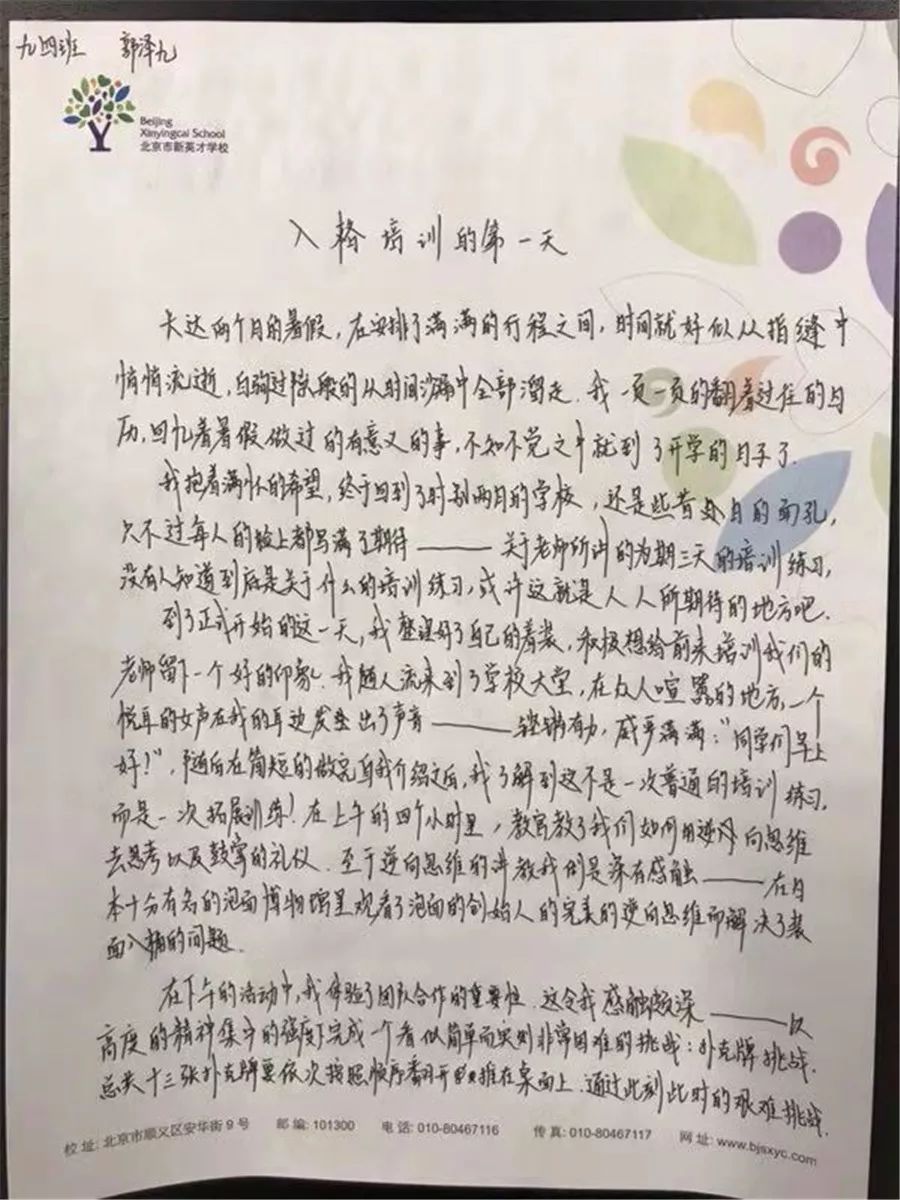 九四班 郭泽九
Beijing
Xinyingcai School
北京市新英才学校
入格培训的第一天
长达两个月的暑假，在安排了满满的行程之间，时间就好似从指缝中
悄悄流逝，白驹过隙般的从时间沙漏中全部溜走。我一页一页的翻着过往的日
历，回忆着暑假做过的有意义的事，不知不觉之中就到了开学的日子了。
我抱着满怀的希望，终于回到了时别两月的学校，还是些昔日的面孔，
只不过每人的脸上都写满了期待——关于老师所讲的为期三天的培训练习，
没有人知道到底是关于什么的培训练习，或许这就是人人所期待的地方吧。
到了正式开始的这一天，我整理好了自己的着装，积极想给前来培训我们的
老师留下一个好的印象。我随人流来到了学校大堂，在众人喧嚣的地方，一个
悦耳的女声在我的耳边发出了声音——铿锵有力，威严满满：“同学们早上
好！”，随后在简短的做完自我介绍之后，我了解到这不是一次普通的培训练习，
而是一次拓展训练！在上午的四个小时里，教官教了我们如何用逆向思维
去思考以及鼓掌的礼仪。至于逆向思维的讲教我倒是深有感触——在日
本十分有名的泡面博物馆里观看了泡面的创始人的完美的逆向思维而解决了装
面入桶的问题。
在下午的活动中，我体验了团队合作的重要性。这令我感触颇深——以
高度的精神集中的强度下完成一个看似简单而实则非常困难的挑战：扑克牌挑战。
总共十三张扑克牌要依次按照顺序翻开堆在桌面上。通过此刻此时的艰难挑战，
校址：北京市顺义区安华街9号 邮编：101300 电话：010-80467116 传真：010-80467117 网址：www.bjsxyc.com